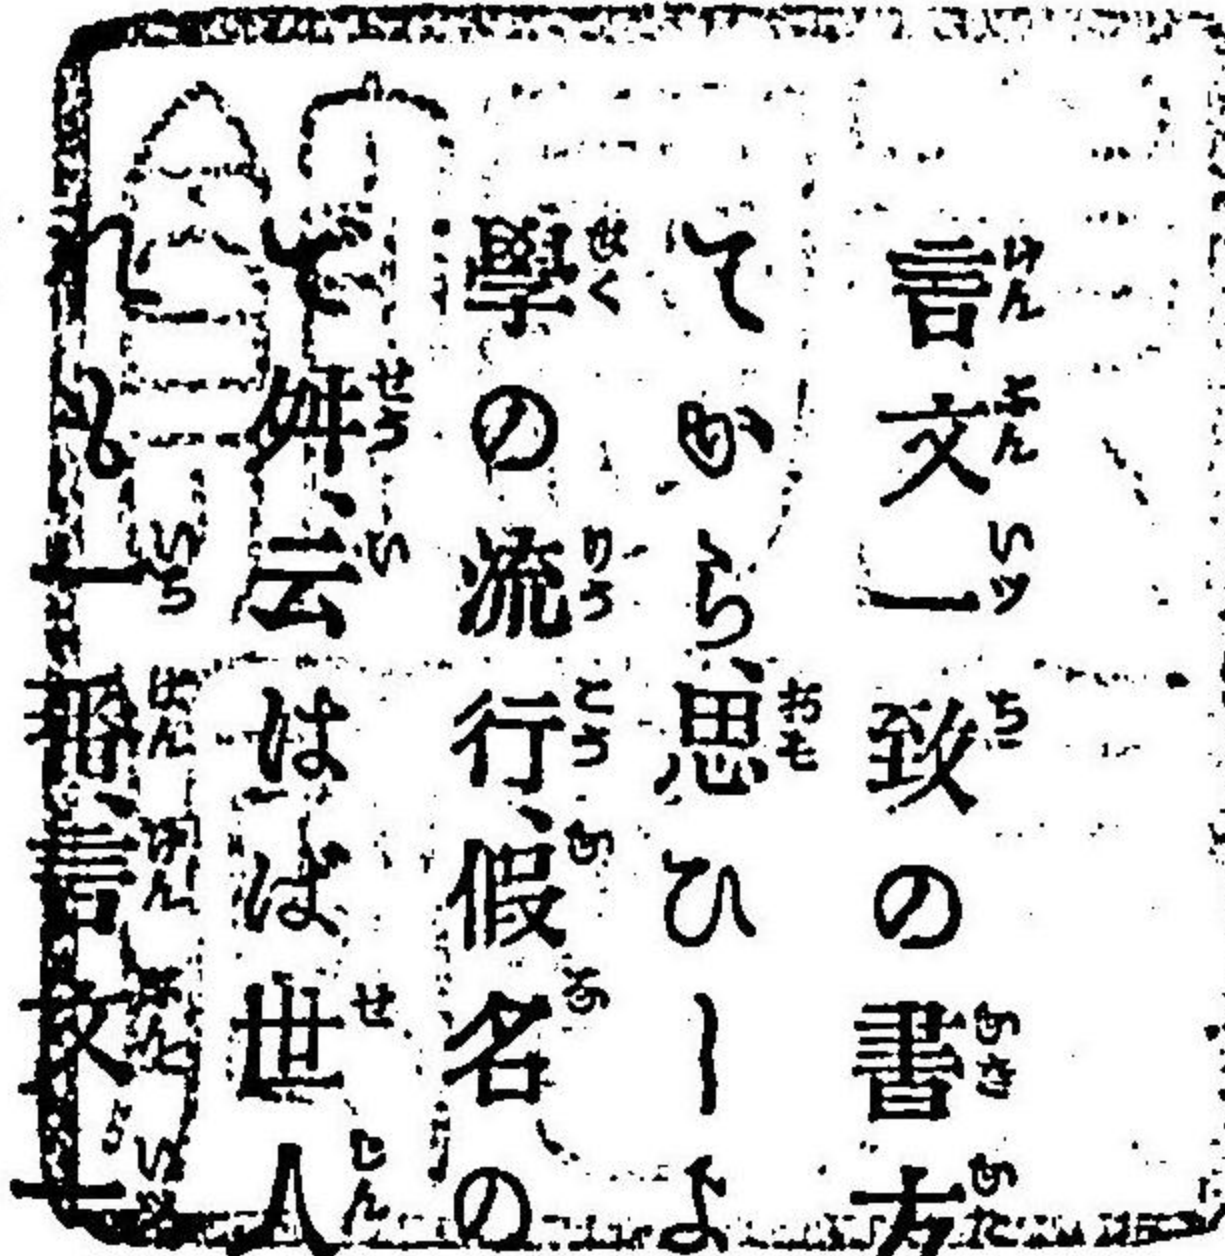 言文一致の書方
てから、思ひしよ
學の流行、假名の
で舛、云はば世人
れ一番、言文一